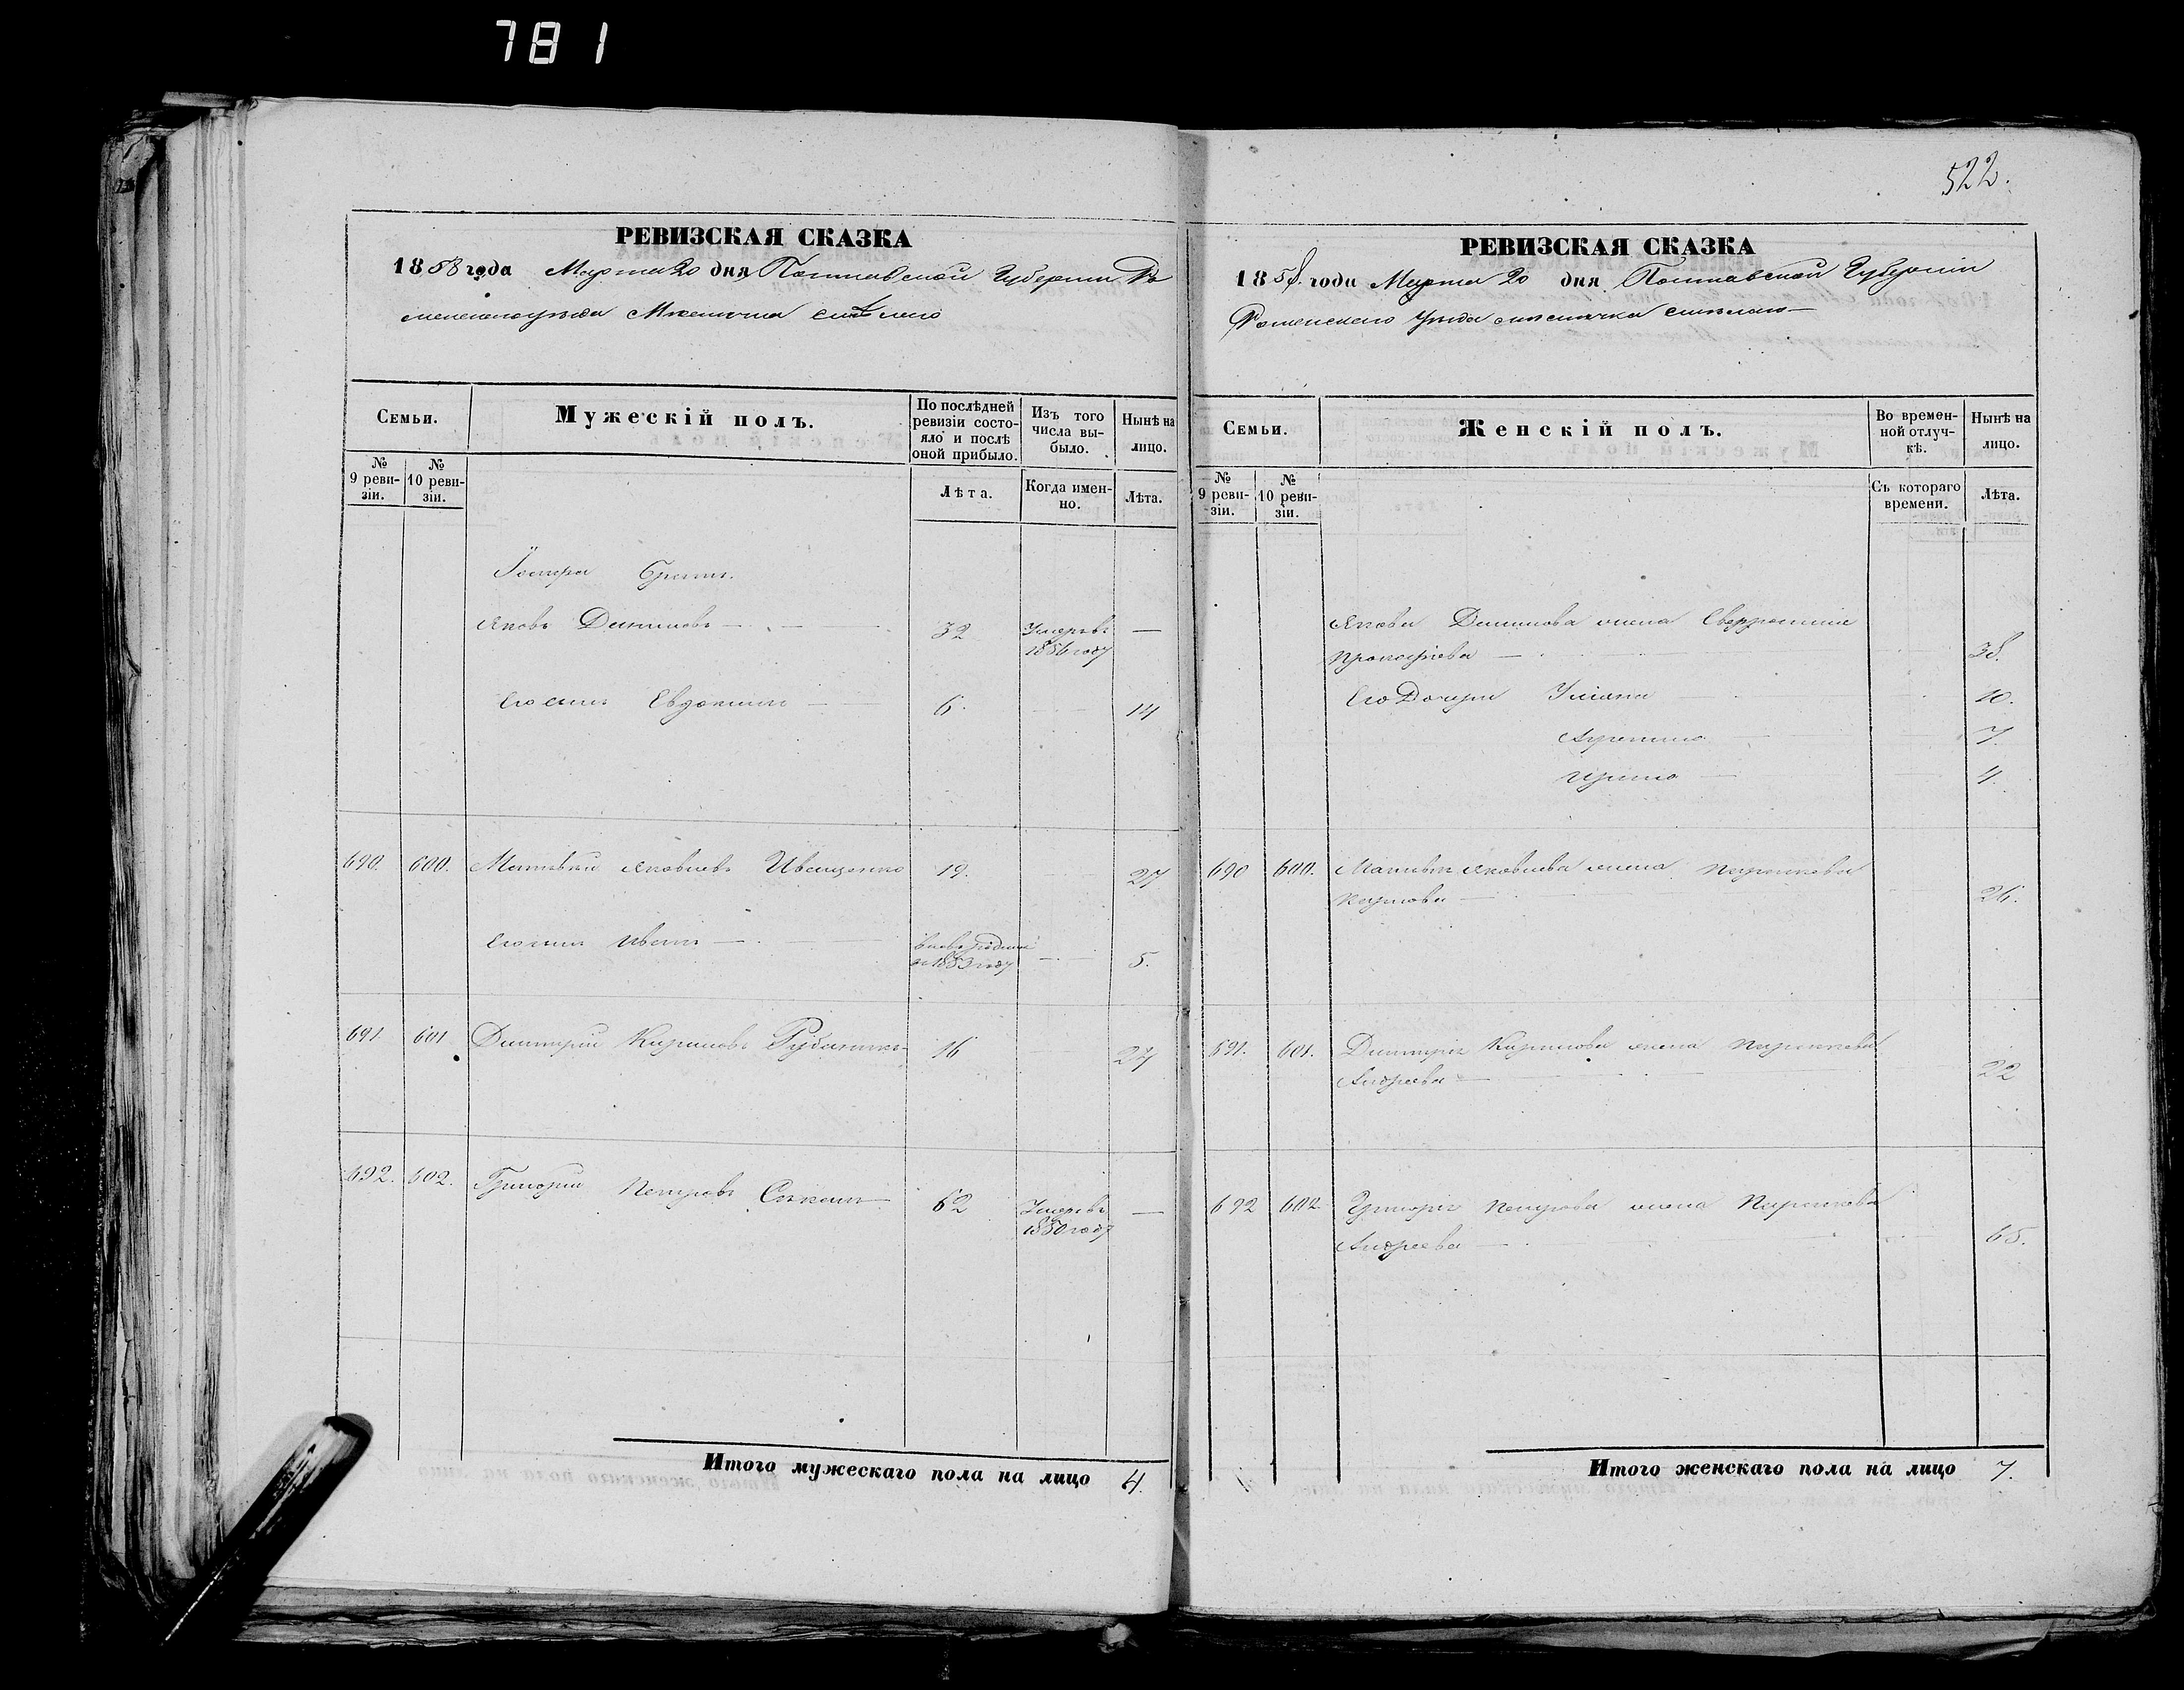 781
522.
РЕВИЗСКАЯ СКАЗКА
1858 года Марта 20 дня Полтавской Губернии Ро
менскаго уѣзда Мѣстечка Смѣлаго
Семьи.
Мужескій полъ.
По послѣдней ревизіи состояло и послѣ оной прибыло.
Изъ того числа выбыло.
Нынѣ на лицо.
№ 9 ревизіи.
№ 10 ревизіи.
Лѣта.
Когда именно.
Лѣта.
Яковъ Даниловъ — 32 Умеръ въ —
1856 году
Его сынъ Евдокимъ — 6. — 14
690. 600. Матвѣй Яковлевъ Иващенко 19. 27
Его сынъ Иванъ — 5.
въ 1853 году
691 601 Дмитрій Кириловъ 16 27
692. 602. Григорій Петровъ 62 Умеръ въ —
1850 году
Итого мужескаго пола на лицо 4.
РЕВИЗСКАЯ СКАЗКА
1858. года Марта 20 дня Полтавской Губерніи
Роменскаго Уѣзда мѣстечка Смѣлаго —
Семьи.
Женскій полъ.
Во временной отлучкѣ.
Нынѣ на лицо.
№ 9 ревизіи.
№ 10 ревизіи.
Съ котораго времени.
Лѣта.
Якова Данилова жена Евфросинія
Прокофіева — 38.
Его Дочери Уліана 10.
7.
Ирина — 4.
690 600. Матвѣя Яковлева жена Параскева
Карпова — 26.
691. 601. Дмитрія Кирилова жена Параскева
Андреева — 22
692 602 Григорія Петрова жена Параскева
Андреева — 65.
Итого женскаго пола на лицо 7.